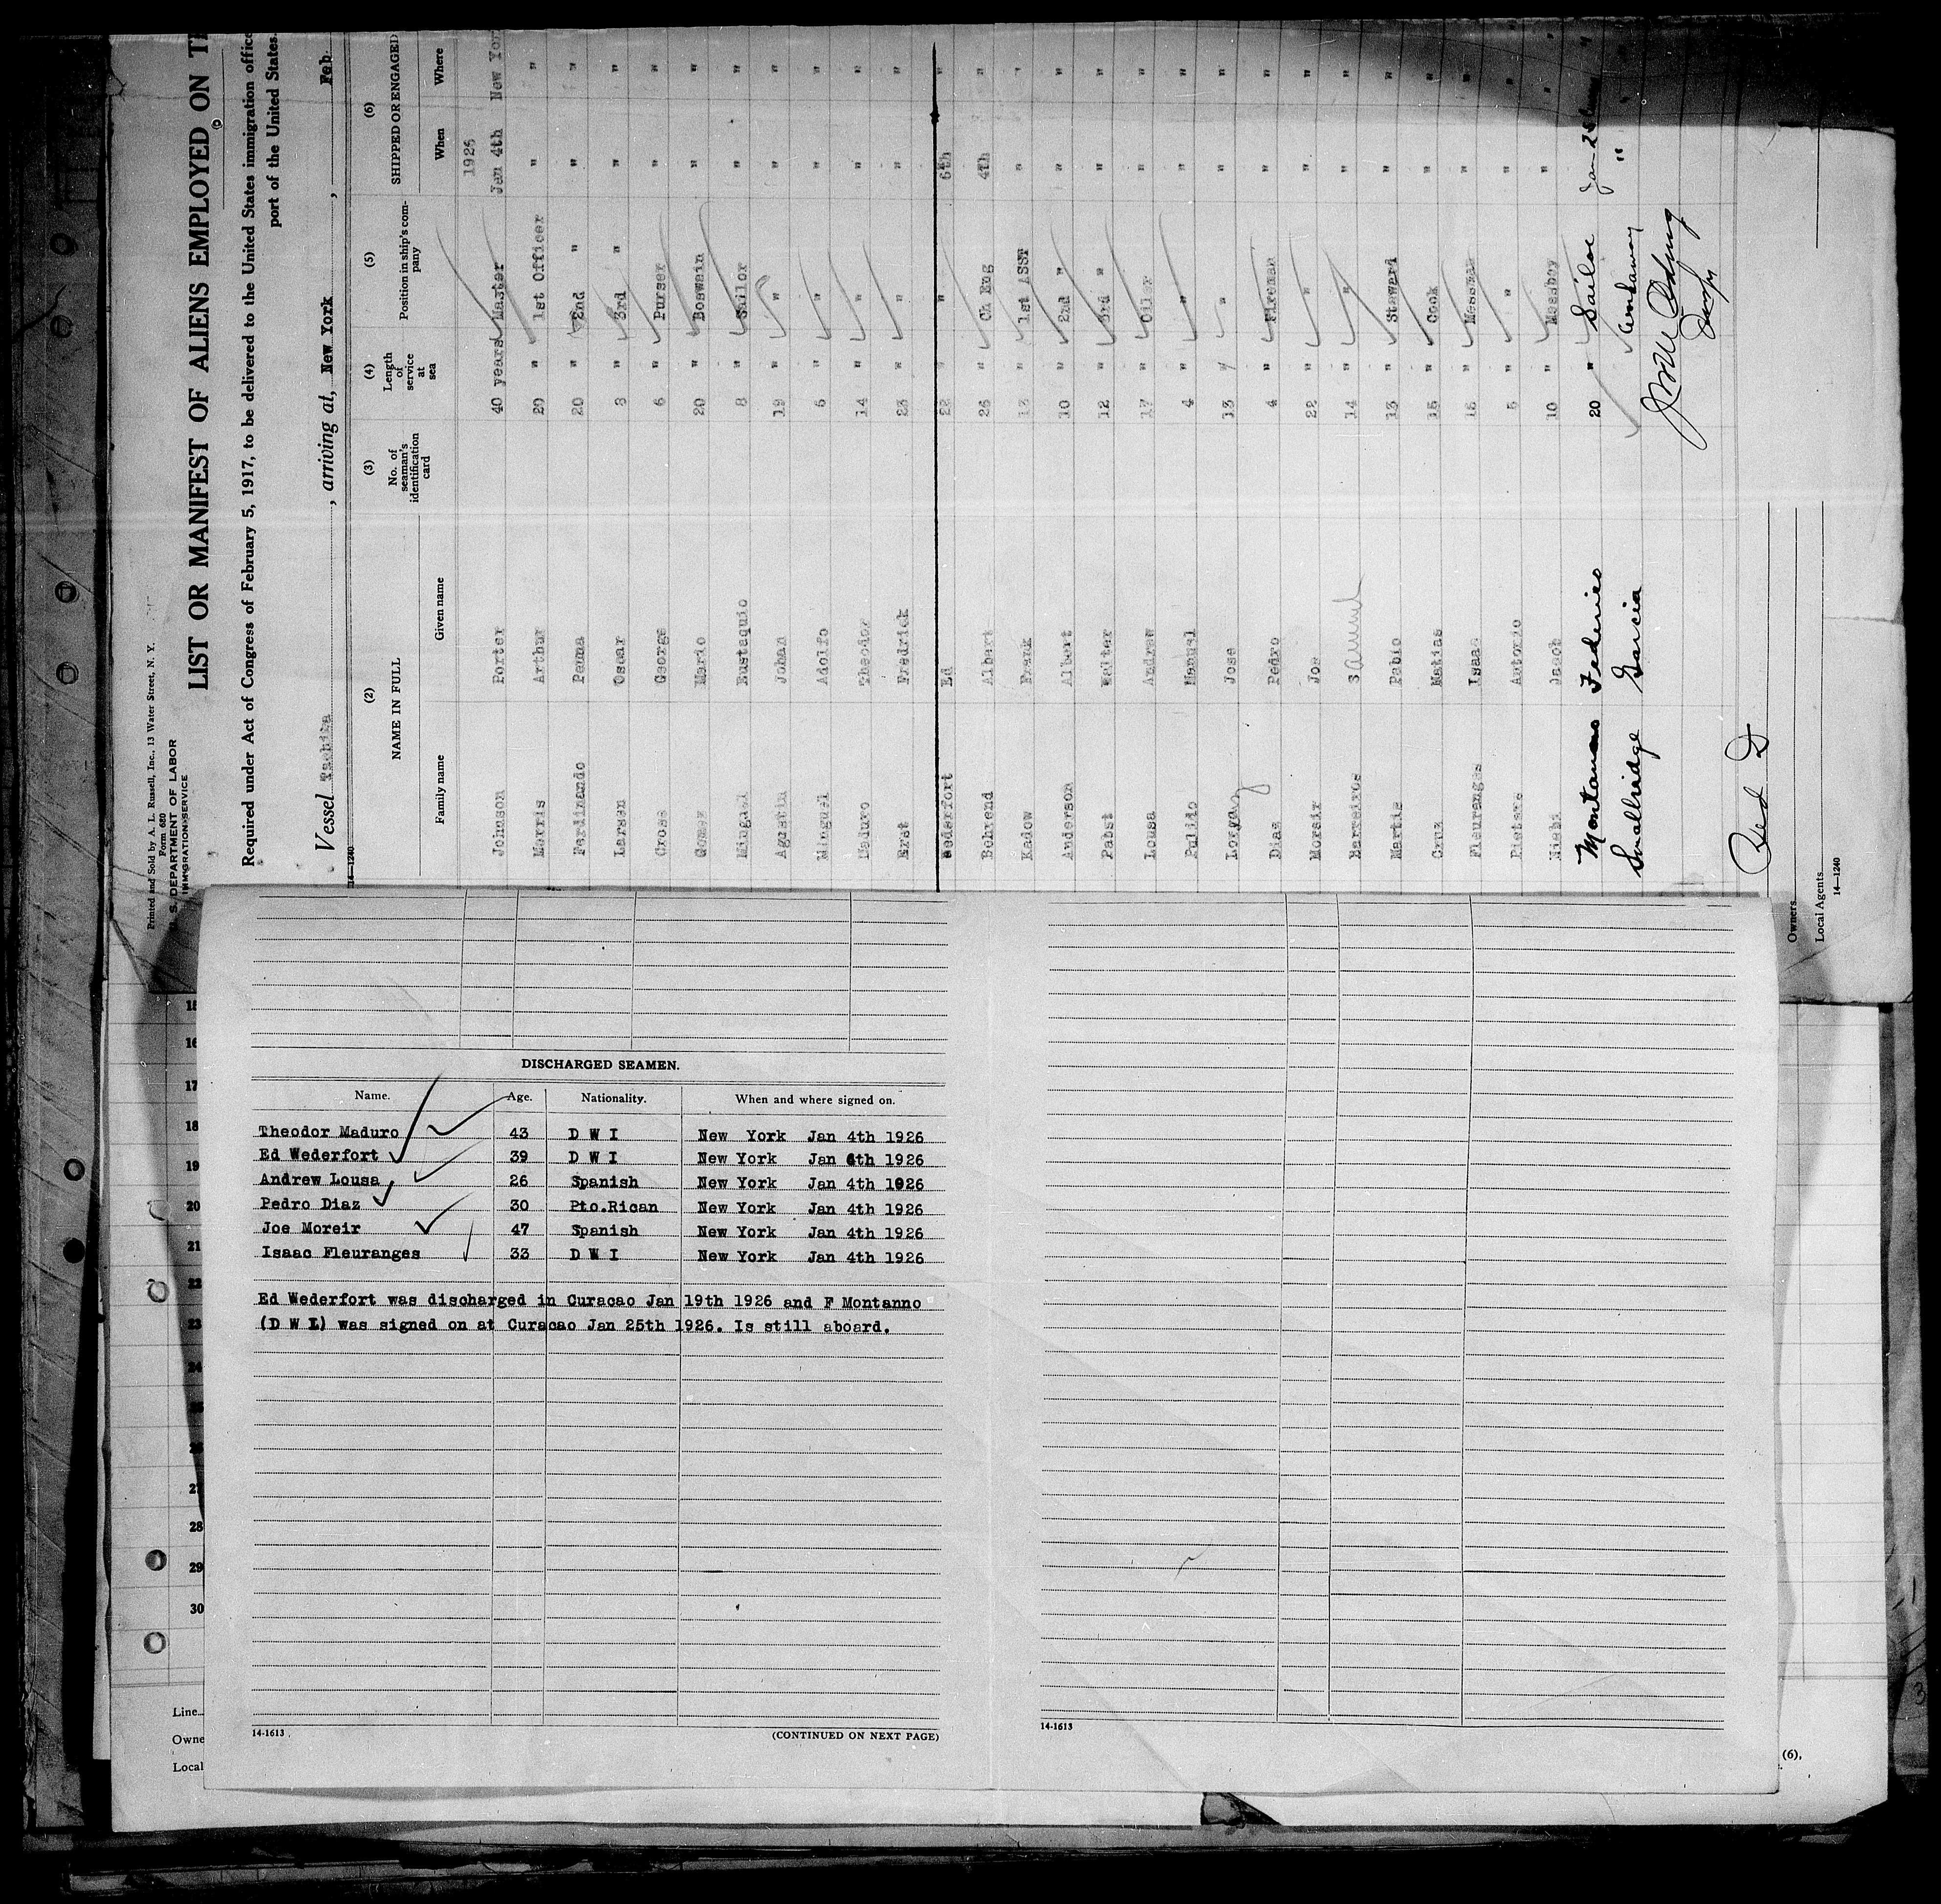 Printed and Sold by A. L. Russell, Inc., 13 Water Street, N. Y.
Form 680
U. S. DEPARTMENT OF LABOR
IMMIGRATION SERVICE
LIST OR MANIFEST OF ALIENS EMPLOYED ON
Required under Act of Congress of February 5, 1917, to be delivered to the United States immigration office
port of the United States.
Vessel , arriving at, New York , Feb.
14—1240
(2) (3) (4) (5) (6)
NAME IN FULL No. of seaman's identification card Length of service at sea Position in ship's company SHIPPED OR ENGAGED
Family name Given name When Where
1926
Johnson Porter 40 years Master Jan 4th New York
Morris Arthur 20 " 1st Officer " "
Ferdinando 20 " 2nd " " "
Larsen Oscar 3 " 3rd " " "
Cross George 6 " Purser " "
Gomez Mario 20 " Boswain " "
Minguel Eustaquio 8 " Sailor " "
Agustin Johan 19 " " " "
Minguel Adolfo 5 " " " "
Maduro Theodor 14 " " " "
Erst Fredrick 23 " " " "
Wederfort Ed 22 " " 6th "
Behrend Albert 25 " Ch Eng 4th "
Kadow Frank 13 " 1st ASST " "
Anderson Albert 10 " 2nd " " "
Pabst Walter 12 " 3rd " " "
Lousa Andrew 17 " Oiler " "
Pulido Manuel 4 " " " "
Jose 13 " " " "
Diaz Pedro 4 " Fireman " "
Moreir Joe 22 " " " "
Barreiros Samuel 14 " " " "
Martis Pabio 13 " Steward " "
Cruz Matias 15 " Cook " "
Fleuranges Isaac 15 " Messman " "
Pieters Antonio 5 " " " "
Jacob 10 " Messboy " "
Montanno Federico 20 " Sailor Jan 25
Smallridge Garcia Workaway "
Owners
Local Agents
14—1240
15
16
17
18
19
20
21
22
23
24
27
28
29
30
Line
Owne
Local
(6),
DISCHARGED SEAMEN.
Name. Age. Nationality. When and where signed on.
Theodor Maduro 43 D W I New York Jan 4th 1926
Ed Wederfort 39 D W I New York Jan 6th 1926
Andrew Lousa 26 Spanish New York Jan 4th 1926
Pedro Diaz 30 Pto.Rican New York Jan 4th 1926
Joe Moreir 47 Spanish New York Jan 4th 1926
Isaac Fleuranges 33 D W I New York Jan 4th 1926
Ed Wederfort was discharged in Curacao Jan 19th 1926 and F Montanno
(D W I) was signed on at Curacao Jan 25th 1926. Is still aboard.
14-1613
(CONTINUED ON NEXT PAGE)
14-1613